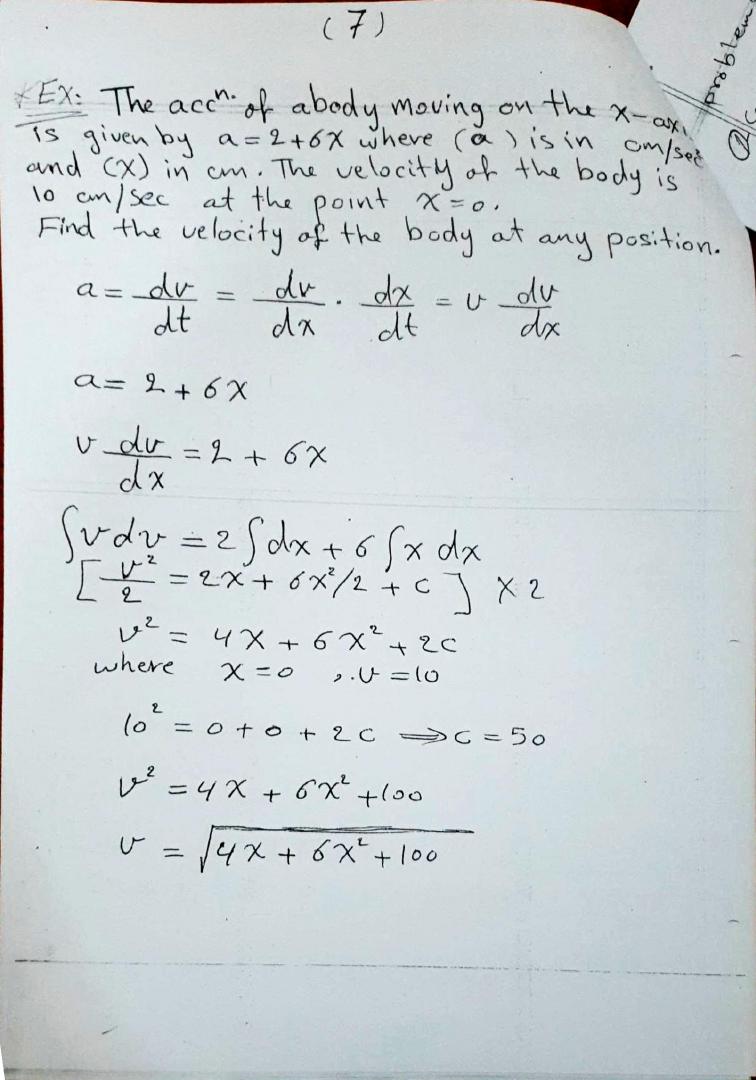 (7)
problem
EX: The accn. of abody moving on the x-axi
is given by a = 2+6x where (a) is in cm/sec²
and (x) in cm. The velocity of the body is
10 cm/sec at the point x=0.
Find the velocity of the body at any position.
a = dv/dt = dv/dx . dx/dt = v dv/dx
a = 2 + 6x
v dv/dx = 2 + 6x
∫v dv = 2 ∫dx + 6 ∫x dx
[v²/2 = 2x + 6x²/2 + c] X 2
v² = 4x + 6x² + 2c
where x=0 , v=10
10² = 0 + 0 + 2c ⟹ c = 50
v² = 4x + 6x² + 100
v = √(4x + 6x² + 100)